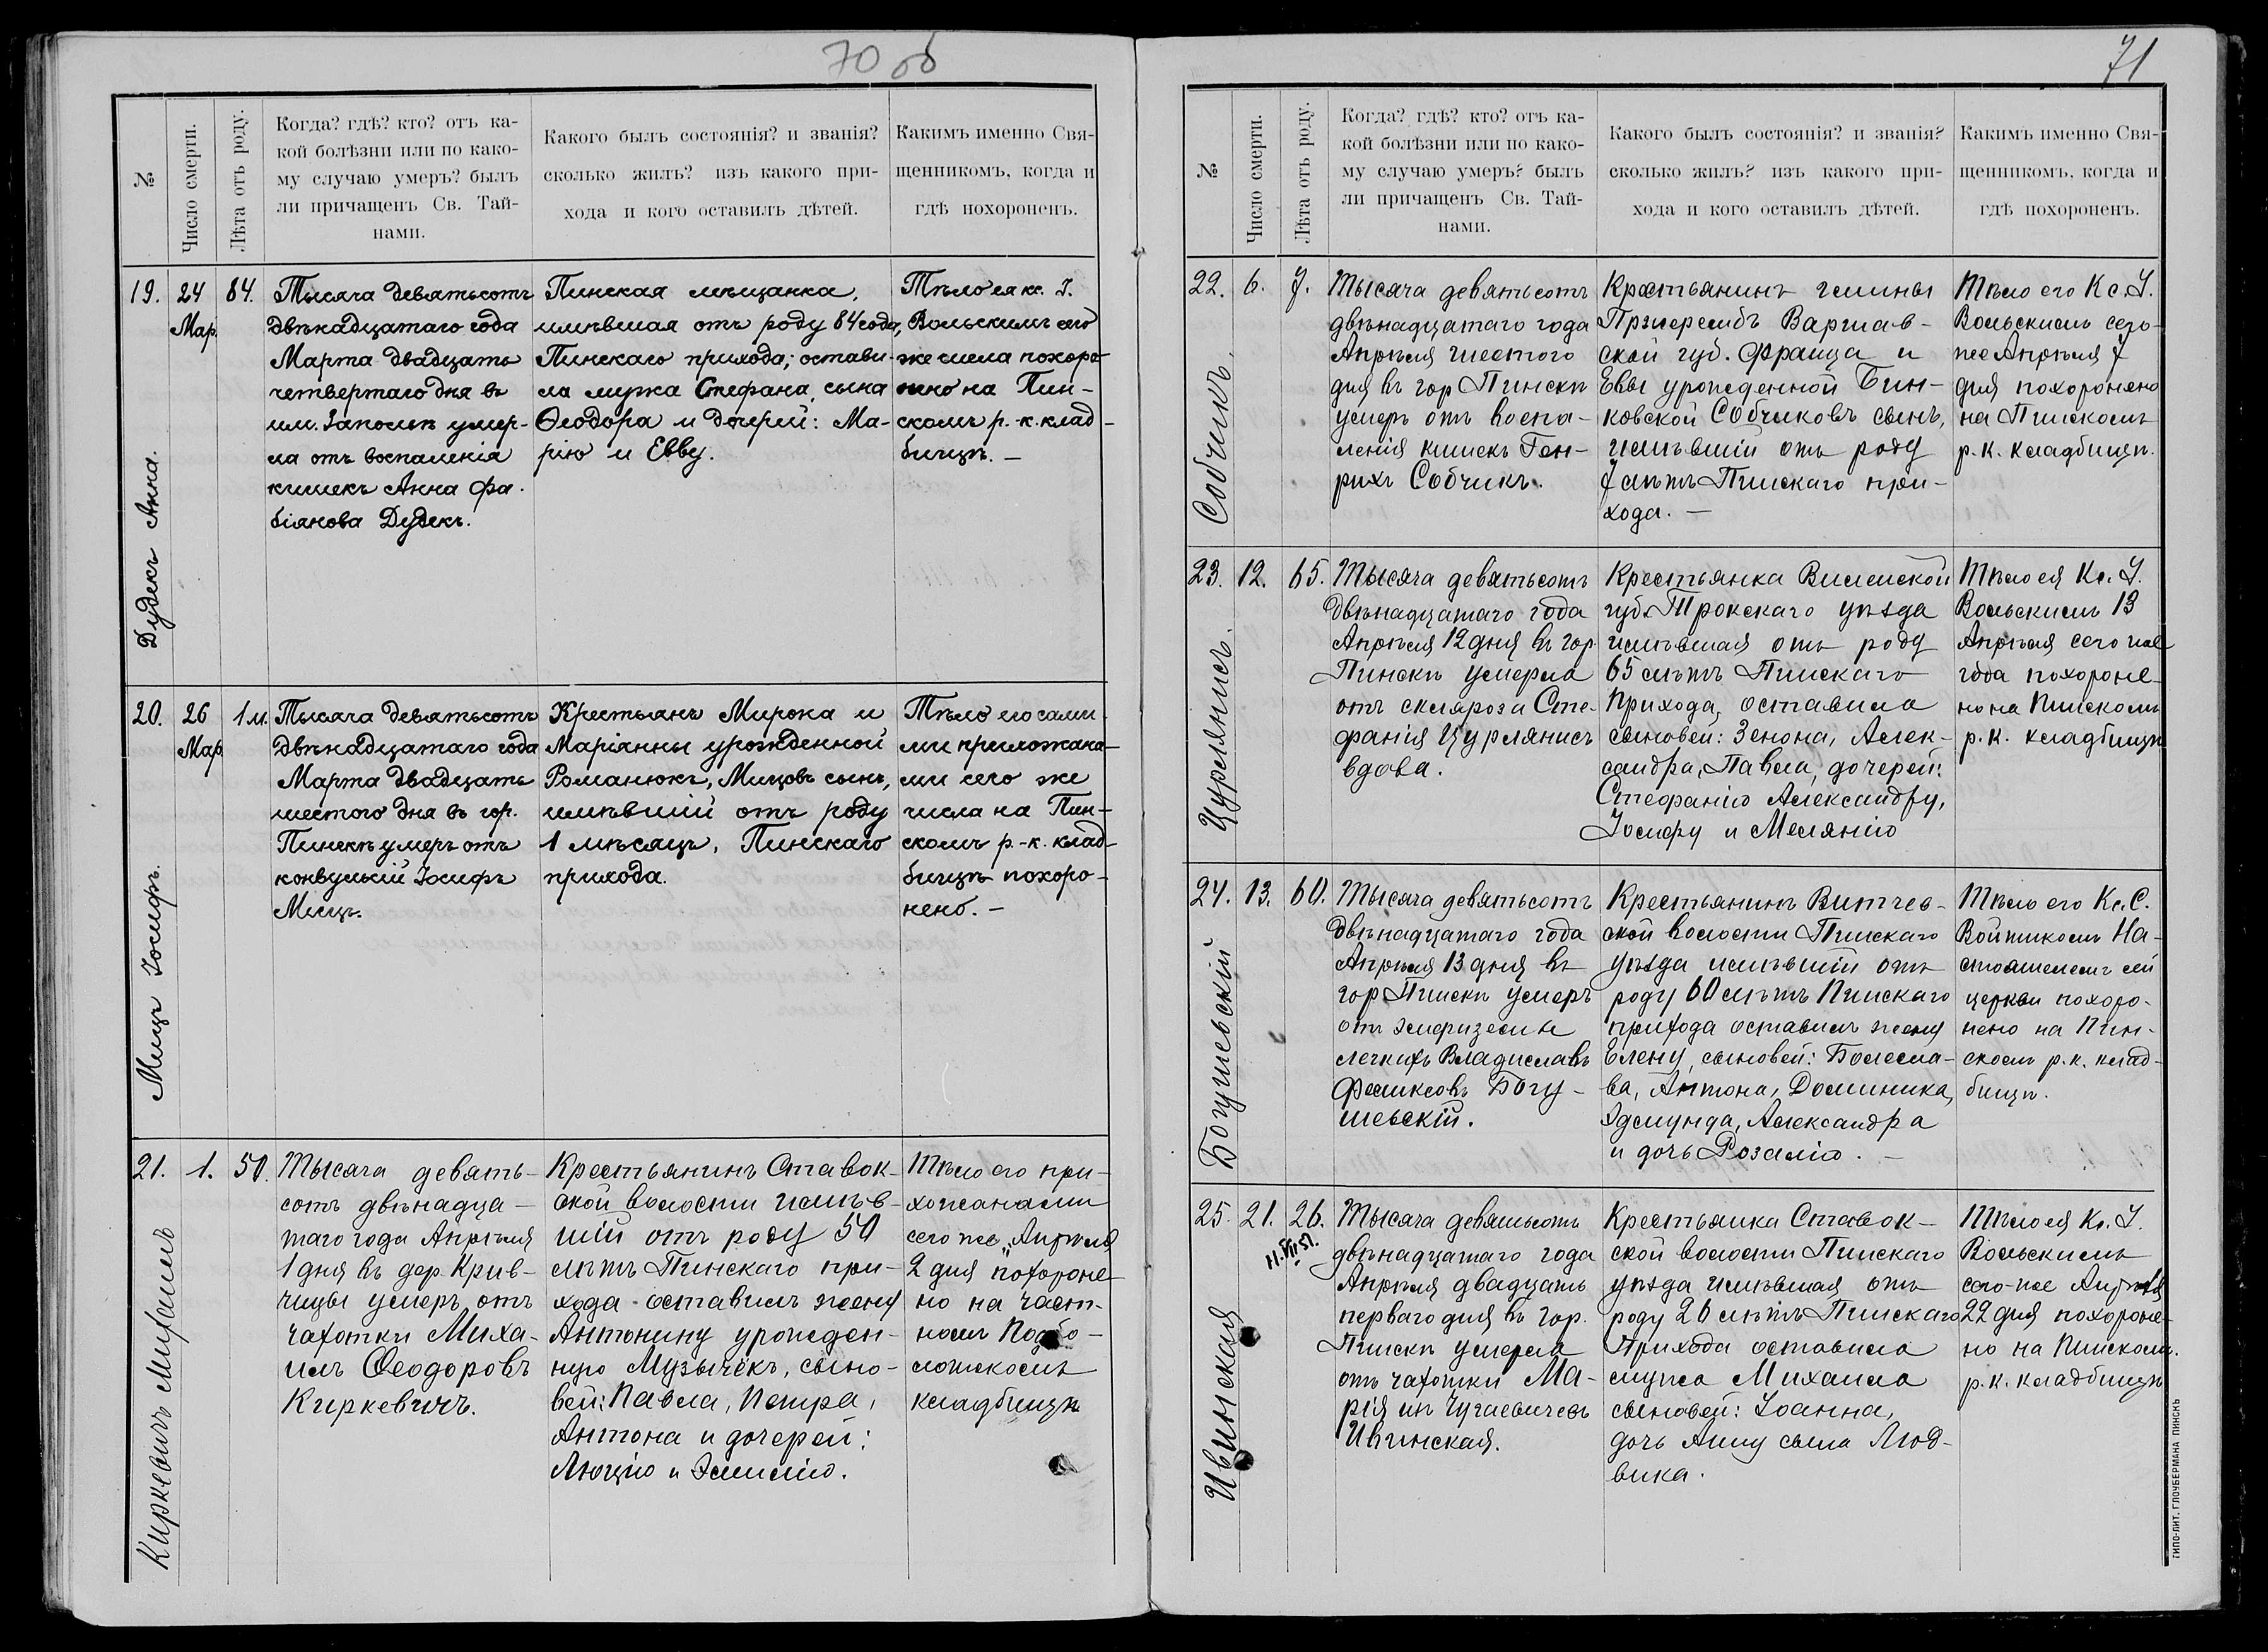 70 об
№
Число смерти.
Лѣта отъ роду.
Когда? гдѣ? кто? отъ ка-
кой болѣзни или по како-
му случаю умеръ? былъ
ли причащенъ Св. Тай-
нами.
Какого былъ состоянія? и званія?
сколько жилъ? изъ какого при-
хода и кого оставилъ дѣтей.
Какимъ именно Свя-
щенникомъ, когда и
гдѣ похороненъ.
Дудекъ Анна.
19.
24
Мар.
84.
Тысяча девятьсотъ
двѣнадцатаго года
Марта двадцать
четвертаго дня въ
им. Запольѣ умер-
ла отъ воспаленія
кишекъ Анна Фа-
біянова Дудекъ.
Пинская мѣщанка,
имѣвшая отъ роду 84 года,
Пинскаго прихода; остави-
ла мужа Стефана, сына
Ѳеодора и дочерей: Ма-
рію и Евву.
Тѣло ея кс. І.
Вольскимъ сего
же числа похоро-
нено на Пин-
скомъ р.-к. клад-
бищѣ. —
Мицъ Іосифъ.
20.
26
Мар
1 м.
Тысяча девятьсотъ
двѣнадцатаго года
Марта двадцать
шестого дня въ гор.
Пинскѣ умеръ отъ
конвульсій Іосифъ
Мицъ.
Крестьянъ Мирона и
Маріанны урожденной
Романюкъ, Мицовъ сынъ,
имѣвшій отъ роду
1 мѣсяцъ, Пинскаго
прихода.
Тѣло его сами-
ми прихожана-
ми сего же
числа на Пин-
скомъ р.-к. клад-
бищѣ похоро-
нено. —
Киркевичъ Михаилъ
21.
1.
50.
Тысяча девять-
сотъ двѣнадца-
таго года Апрѣля
1 дня въ дер. Крив-
чицы умеръ отъ
чахотки Миха-
илъ Ѳеодоровъ
Киркевичъ.
Крестьянинъ Ставок-
ской волости имѣв-
шій отъ роду 50
лѣтъ Пинскаго при-
хода - оставилъ жену
Антонину урожден-
ную Музычекъ, сыно-
вей: Павла, Петра,
Антона и дочерей:
Люцію и Эмилію.
Тѣло его при-
хожанами
сего же Апрѣля
2 дня похороне-
но на част-
номъ Подбо-
лотскомъ
кладбищѣ
71
№
Число смерти.
Лѣта отъ роду.
Когда? гдѣ? кто? отъ ка-
кой болѣзни или по како-
му случаю умеръ? былъ
ли причащенъ Св. Тай-
нами.
Какого былъ состоянія? и званія?
сколько жилъ? изъ какого при-
хода и кого оставилъ дѣтей.
Какимъ именно Свя-
щенникомъ, когда и
гдѣ похороненъ.
Собчикъ.
22.
6.
7.
Тысяча девятьсотъ
двѣнадцатаго года
Апрѣля шестого
дня въ гор Пинскѣ
умеръ отъ воспа-
ленія кишекъ Ген-
рихъ Собчикъ.
Крестьянинъ гмины
Пржерембъ Варшав-
ской губ. Франца и
Евы урожденной Бин-
ковской Собчиковъ сынъ,
имѣвшій отъ роду
7 лѣтъ Пинскаго при-
хода. —
Тѣло его Кс. І.
Вольскимъ сего-
же Апрѣля 7
дня похоронено
на Пинскомъ
р. к. кладбищѣ.
Цурлянисъ.
23.
12.
65.
Тысяча девятьсотъ
двѣнадцатаго года
Апрѣля 12 дня въ гор
Пинскѣ умерла
отъ скляроза Сте-
фанія Цурлянисъ
вдова.
Крестьянка Виленской
губ. Трокскаго уѣзда
имѣвшая отъ роду
65 лѣтъ Пинскаго
прихода, оставила
сыновей: Зенона, Алек-
сандра, Павла, дочерей:
Стефанію Александру,
Іосифу и Мелянію
Тѣло ея Кс. І.
Вольскимъ 13
Апрѣля сего же
года похороне-
но на Пинскомъ
р. к. кладбищѣ
Богушевскій
24.
13.
60.
Тысяча девятьсотъ
двѣнадцатаго года
Апрѣля 13 дня въ
гор Пинскѣ умеръ
отъ эмфиземы
легкихъ Владиславъ
Феликсовъ Богу-
шевскій.
Крестьянинъ Витчев-
ской волости Пинскаго
уѣзда имѣвшій отъ
роду 60 лѣтъ Пинскаго
прихода оставилъ жену
Елену, сыновей: Болесла-
ва, Антона, Доминика,
Эдмунда, Александра
и дочь Розалію. —
Тѣло его Кс. С.
Войтикомъ На-
стоятелемъ сей
церкви похоро-
нено на Пин-
скомъ р. к. клад-
бищѣ.
Ивинская
25.
21.
26.
Тысяча девятьсотъ
двѣнадцатаго года
Апрѣля двадцать
перваго дня въ гор.
Пинскѣ умерла
отъ чахотки Ма-
рія изъ Чугаевичевъ
Ивинская.
Крестьянка Ставок-
ской волости Пинскаго
уѣзда имѣвшая отъ
роду 26 лѣтъ Пинскаго
прихода оставила
мужа Михаила
сыновей: Іоанна,
дочь Анну сына Люд-
вика.
Тѣло ея Кс. І.
Вольскимъ
сего-же Апрѣля
22 дня похороне-
но на Пинскомъ.
р. к. кладбищѣ
ТИПО-ЛИТ. ГЛОУБЕРМАНА ПИНСКЪ